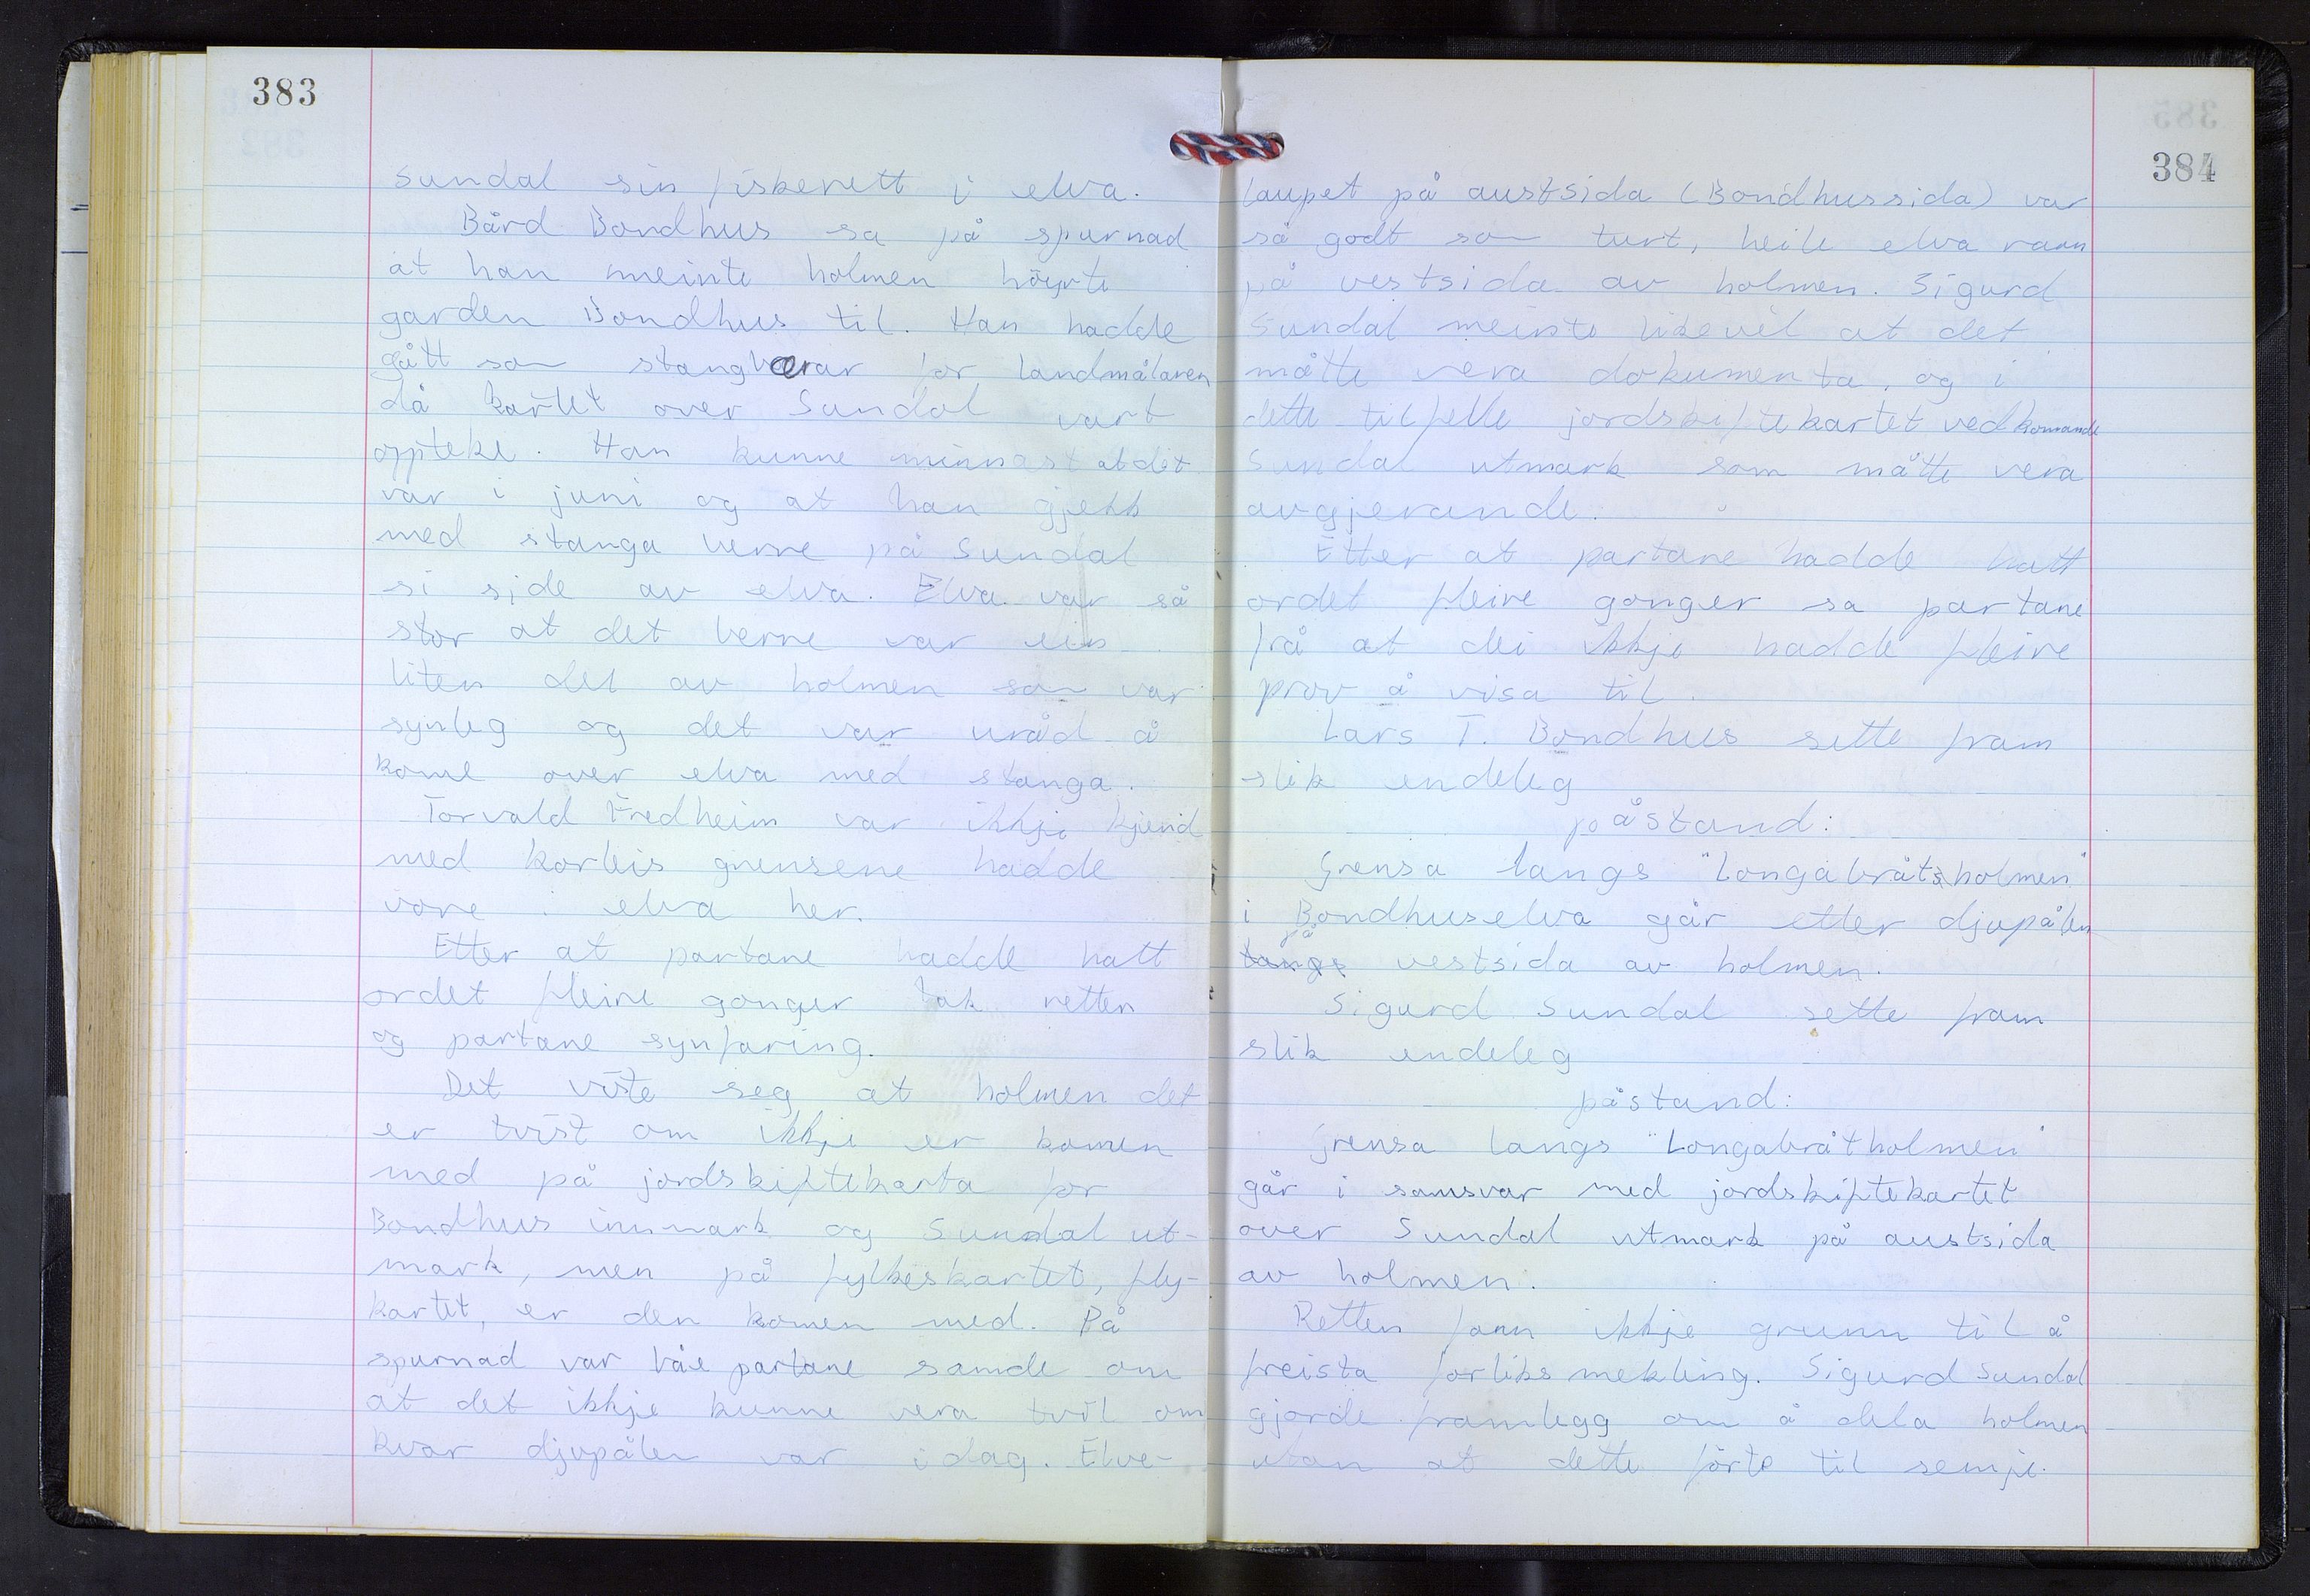 383
Sundal sin fiskerett i elva.
Bård Bondhus sa på spurnad
at han meinte holmen høyrte
garden Bondhus til. Han hadde
gått som stangberar for landmålaren
då kartet over Sundal vart
oppteke. Han kunne minnast at det
var i juni og at han gjekk
med stanga berre på Sundal
si side av elva. Elva var så
stor at det berre var ein
liten del av holmen som var
synleg og det var uråd å
kome over elva med stanga.
Torvald Fredheim var ikkje kjend
med korleis grensene hadde
vore i elva her.
Etter at partane hadde hatt
ordet fleire gonger tok retten
og partane synfaring.
Det viste seg at holmen det
er tvist om ikkje er komen
med på jordskiftekarta for
Bondhus innmark og Sundal ut-
mark, men på fylkeskartet, fly-
kartet, er den komen med. På
spurnad var båe partane samde om
at det ikkje kunne vera tvil om
kvar djupålen var idag. Elve-
384
laupet på austsida (Bondhussida) var
så godt som turt, heile elva rann
på vestsida av holmen. Sigurd
Sundal meinte likevel at det
måtte vera dokumenta, og i
dette tilfelle jordskiftekartet vedkomande
Sundal utmark som måtte vera
avgjerande.
Etter at partane hadde hatt
ordet fleire gonger sa partane
frå at dei ikkje hadde fleire
prov å visa til.
Lars T. Bondhus sette fram
slik endeleg
påstand:
Grensa langs "Longabråtsholmen"
i Bondhuselva går etter djupålen
på
langs vestsida av holmen.
Sigurd Sundal sette fram
slik endeleg
påstand:
Grensa langs "Longabråtholmen"
går i samsvar med jordskiftekartet
over Sundal utmark på austsida
av holmen.
Retten fann ikkje grunn til å
freista forliksmekling. Sigurd Sundal
gjorde framlegg om å dela holmen
utan at dette førte til semje.